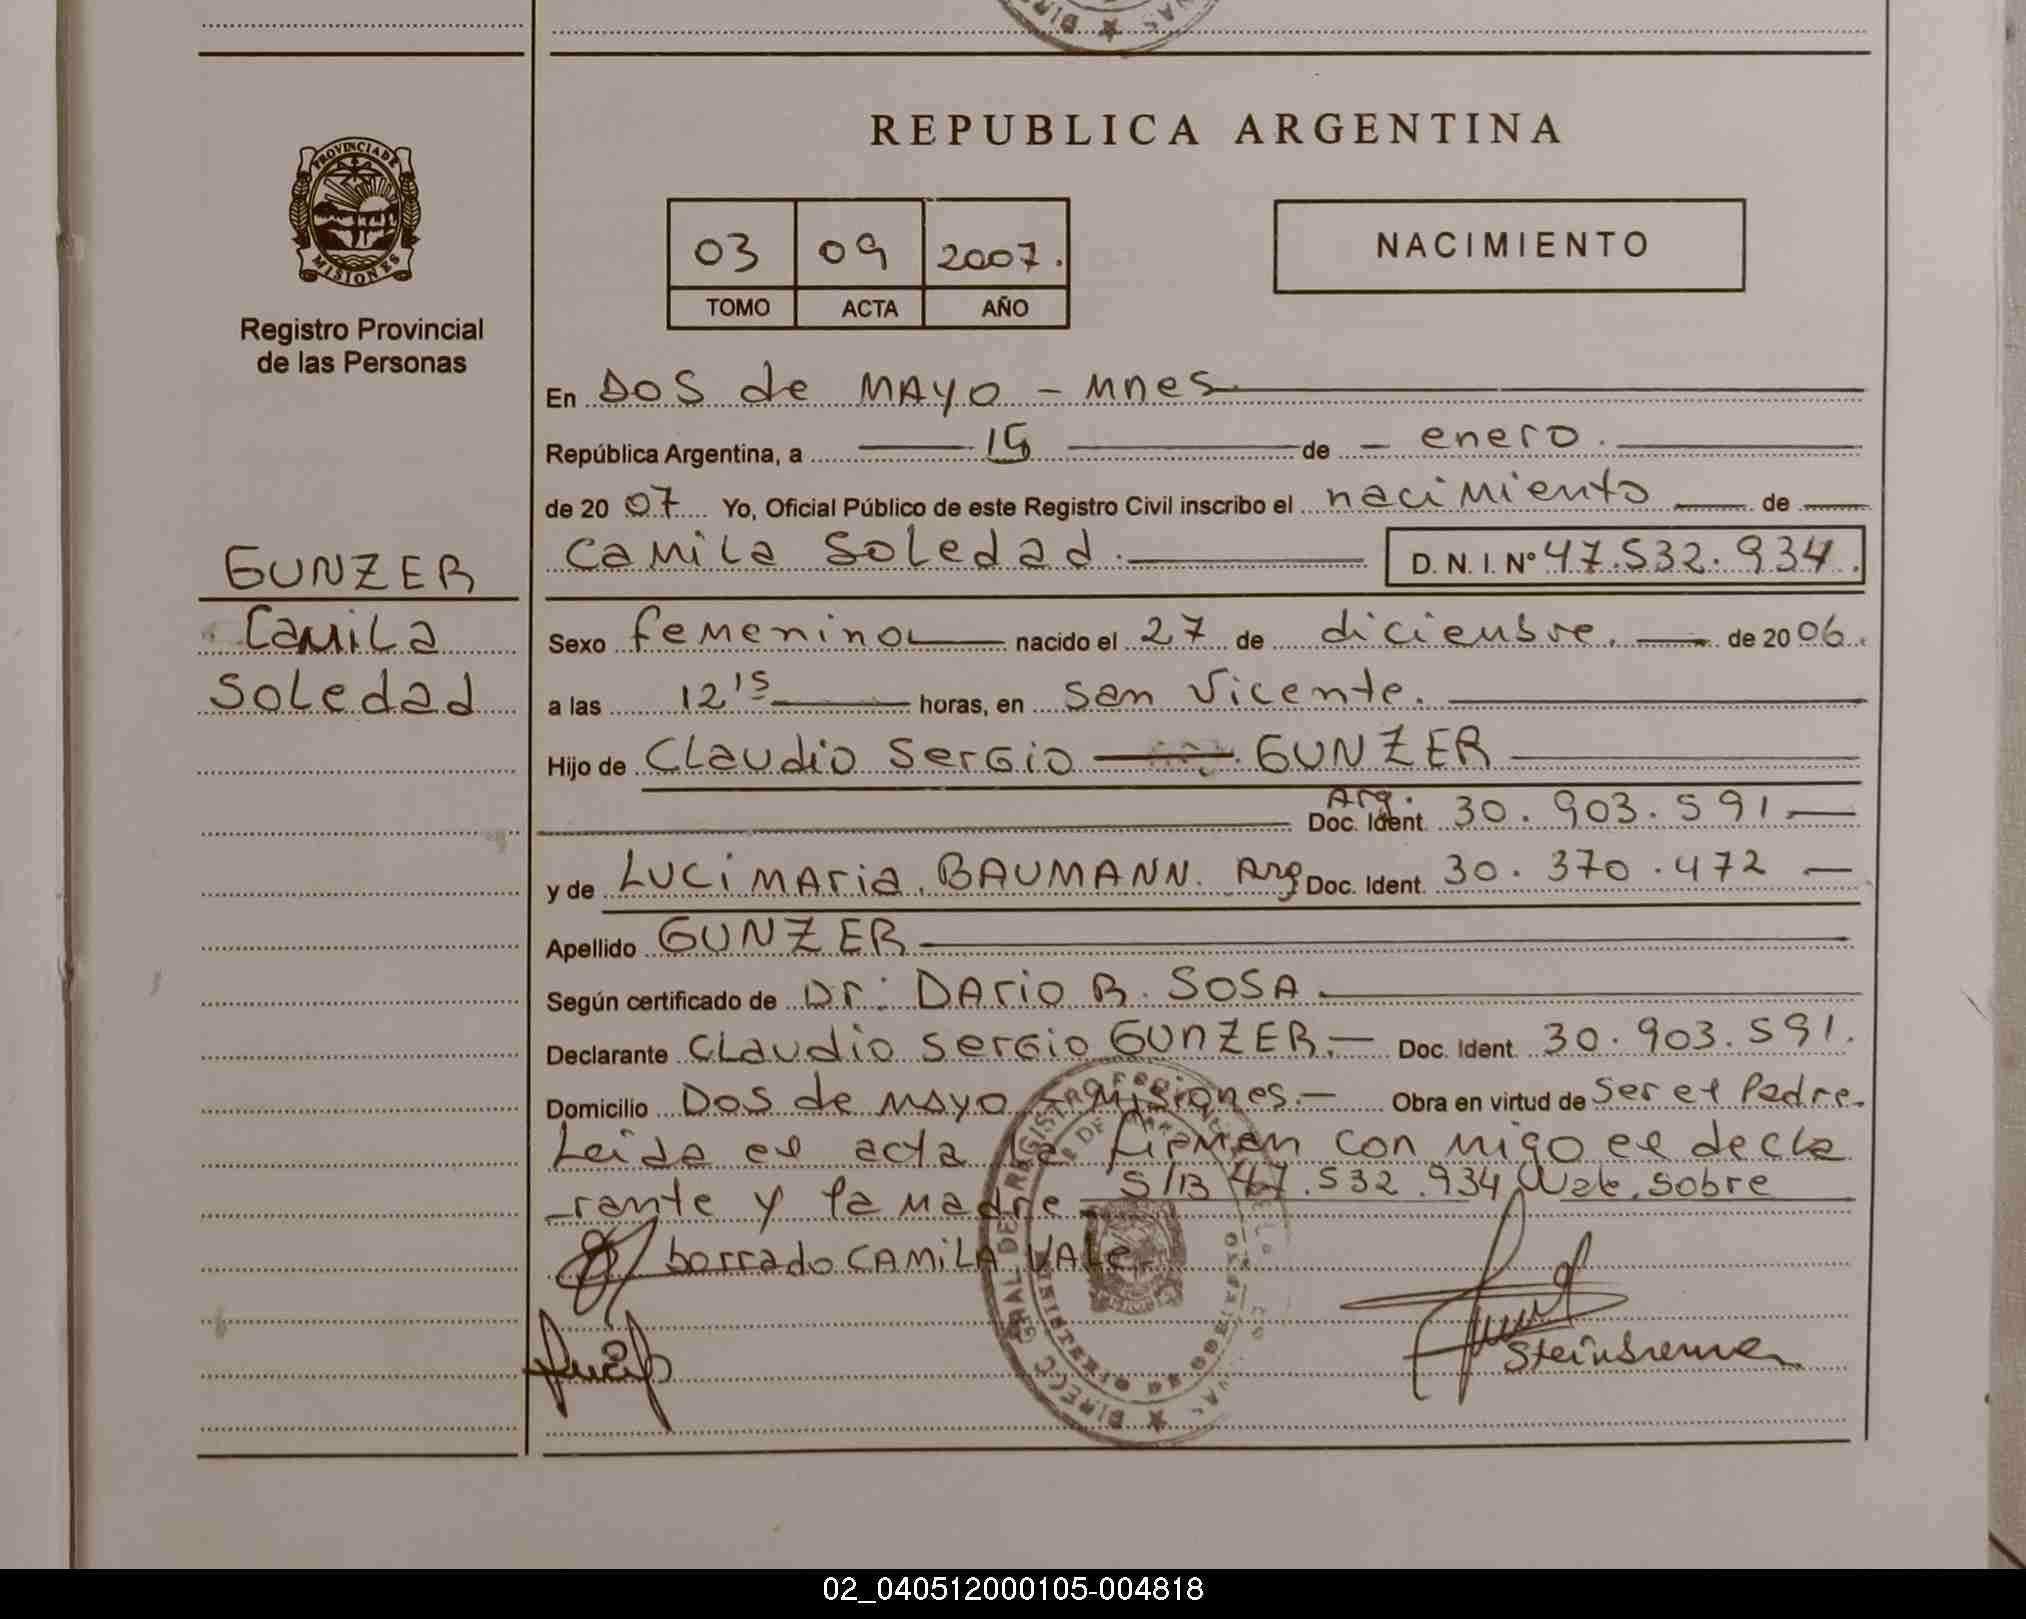 REPUBLICA ARGENTINA
PROVINCIA DE MISIONES
Registro Provincial
de las Personas
03 09 2007.
TOMO ACTA AÑO
NACIMIENTO
En Dos de MAYO - Mnes
República Argentina, a 15 de enero.
de 2007 Yo, Oficial Público de este Registro Civil inscribo el nacimiento de
GUNZER
Camila
Soledad
Camila Soledad. D. N. I. Nº 47.532.934.
Sexo femenino nacido el 27 de diciembre. de 2006.
a las 12 15 horas, en San Vicente.
Hijo de Claudio Sergio GUNZER
Arg.
Doc. Ident. 30.903.591
y de LUCIMARia BAUMANN. Arg Doc. Ident. 30.370.472
Apellido GUNZER
Según certificado de Dr. DARio B. SOSA
Declarante Claudio Sergio GUNZER.- Doc. Ident. 30.903.591.
Domicilio Dos de Mayo - Misiones.- Obra en virtud de Ser el Padre.
Leida el acta la firman con migo el decla
rante y la madre S/B 47.532.934 Vale. Sobre
borrado CAMiLA VALE.
Steinbrenner
02_040512000105-004818